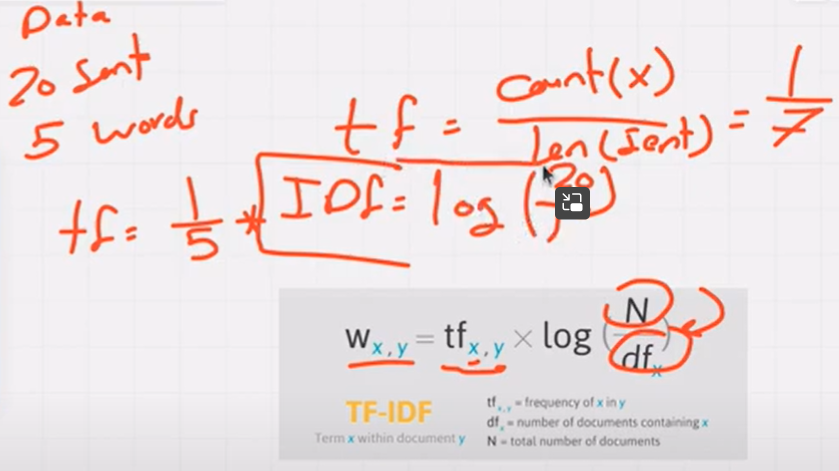 Data
20 Sent
5 words
tf = count(x) / len(Sent) = 1/7
tf = 1/5 * IDf = log(20/1)
w x,y = tf x,y × log(N / df x)
TF-IDF
Term x within document y
tf x,y = frequency of x in y
df x = number of documents containing x
N = total number of documents